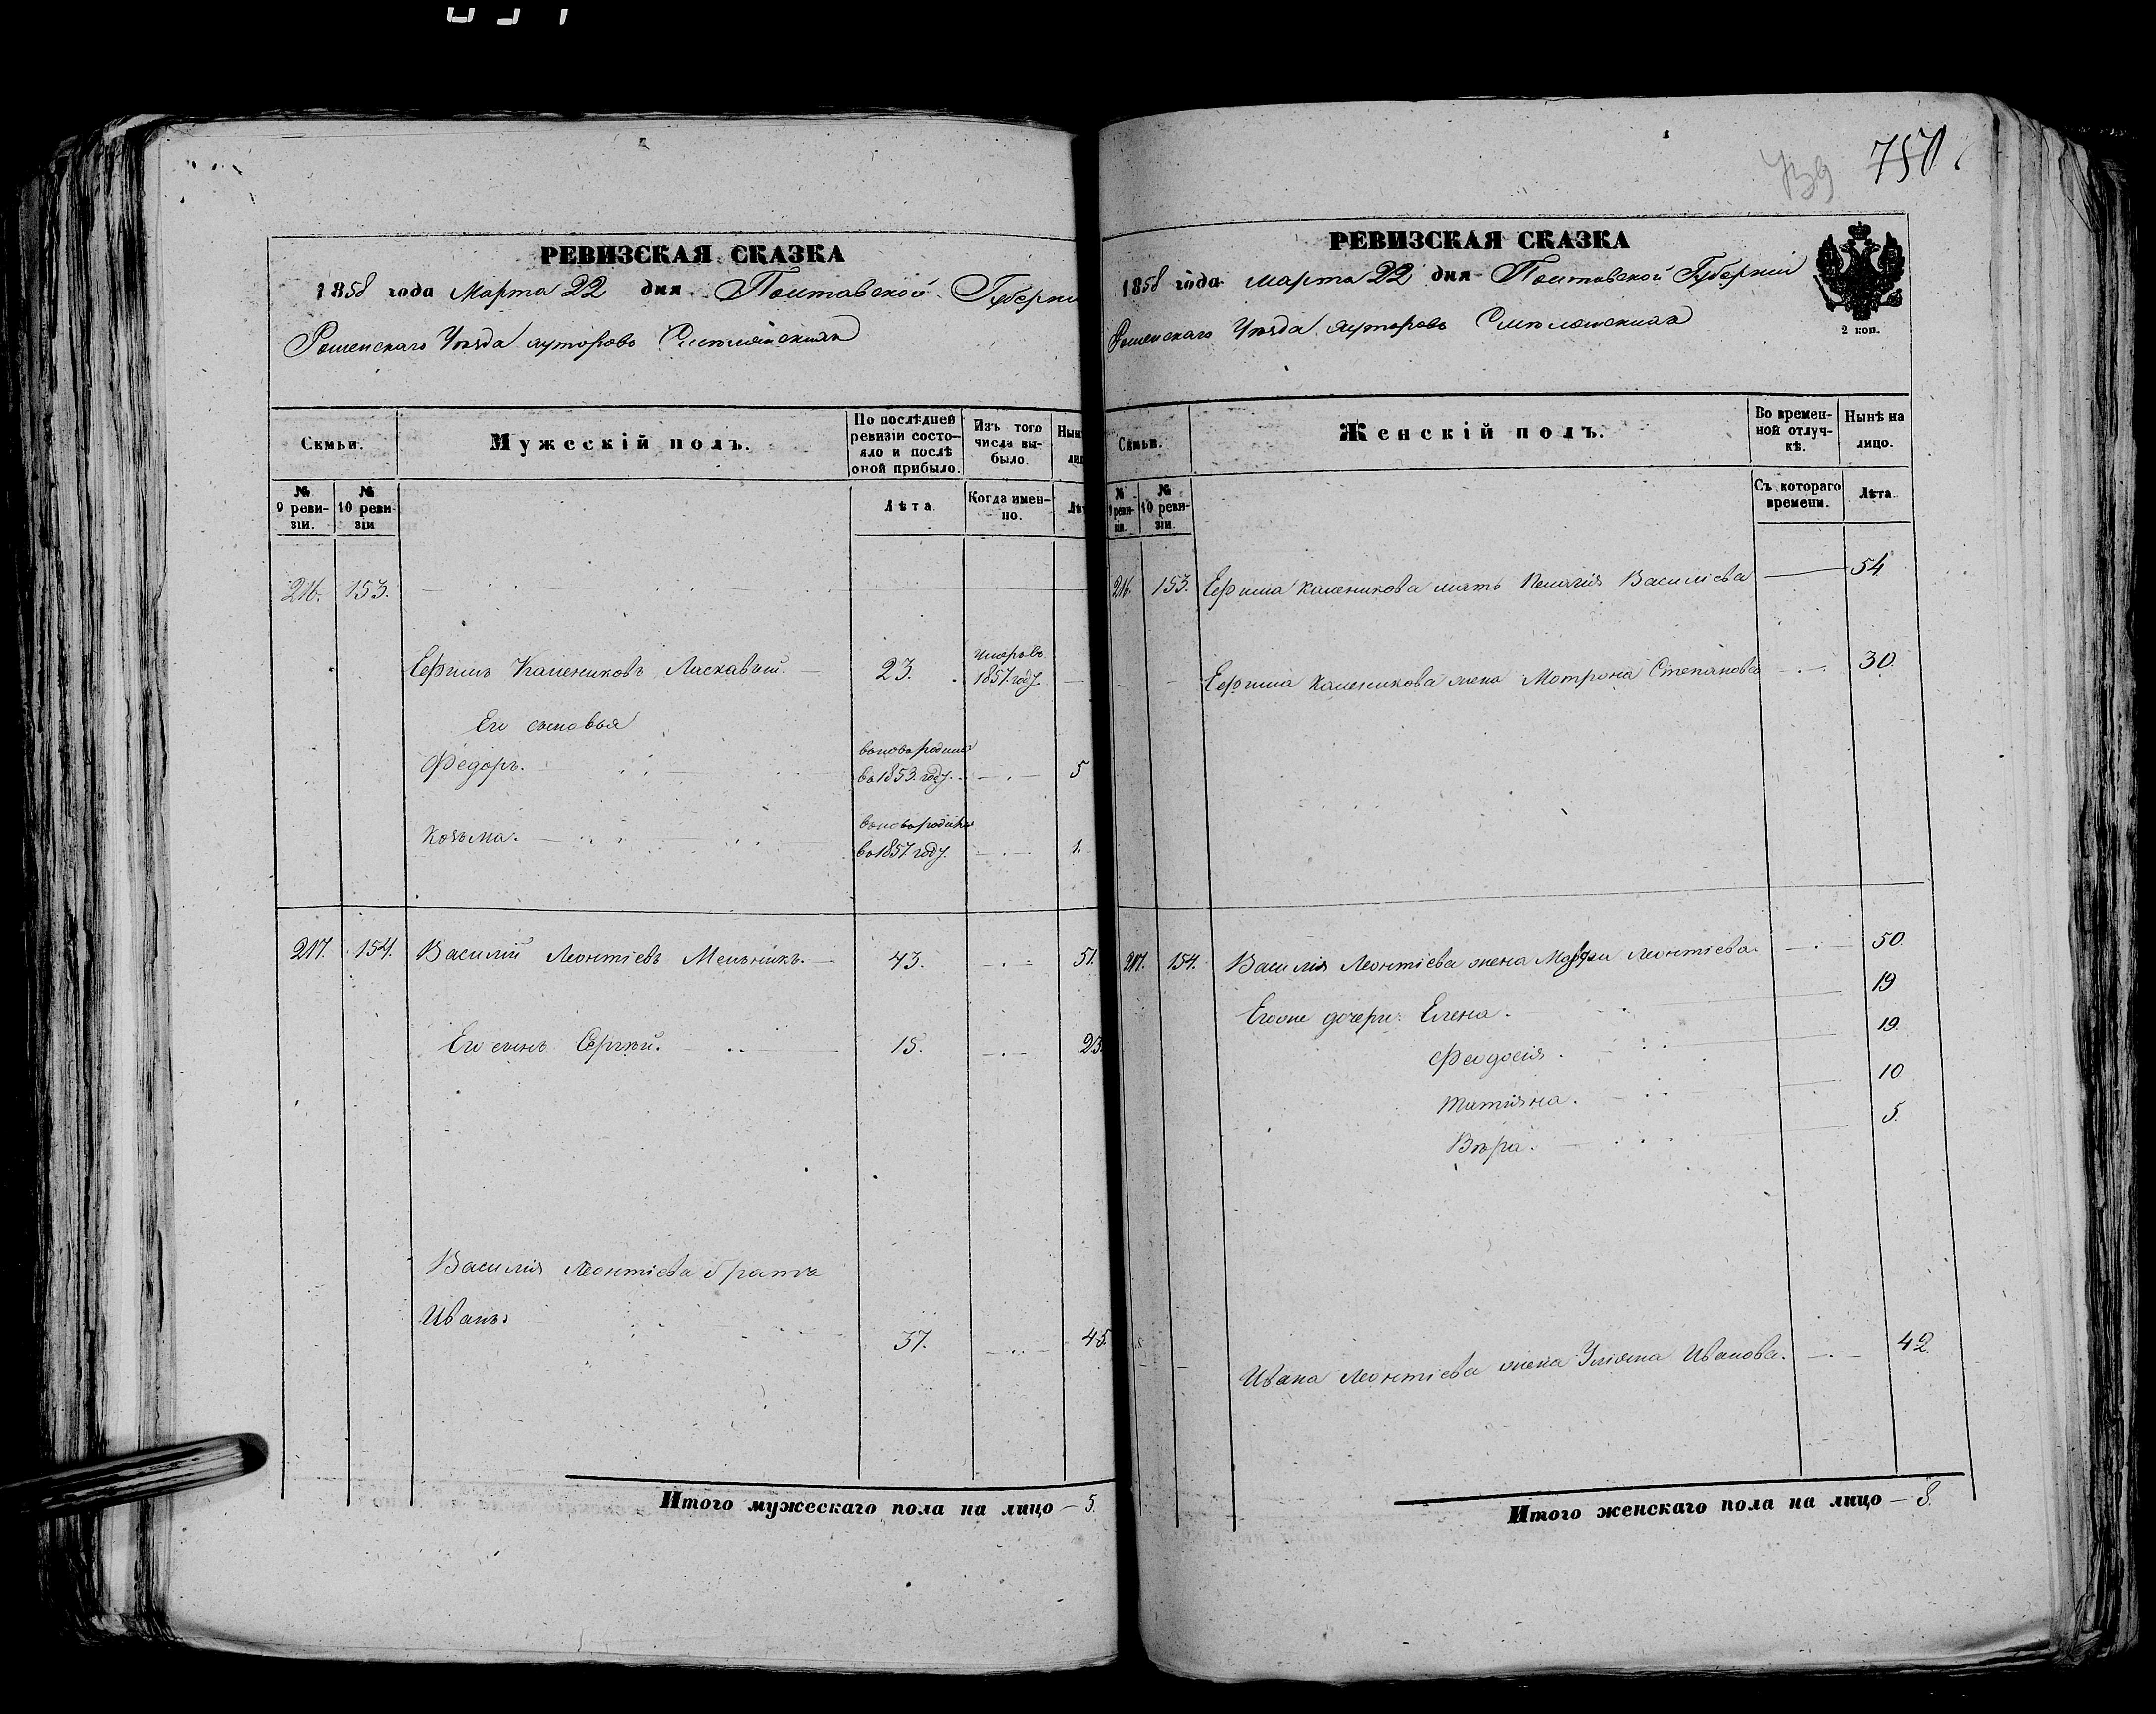 750
РЕВИЗСКАЯ СКАЗКА
1858 года Марта 22 дня Полтавской Губерни
Роменскаго Уезда хуторовъ
Семьи.
Мужескій полъ.
По послѣдней ревизіи состояло и послѣ оной прибыло.
Изъ того числа выбыло.
Нын
№ 9 ревизіи.
№ 10 ревизіи
Лѣта
Когда именно.
Лѣ
216. 153.
Ефимъ Калениковъ Ласкавый. 23. умеръ въ 1857 году.
Его сыновья
Федоръ. въ 1853. году. 5
Козьма. въ 1857 году. 1.
217. 154. Василий Леонтіевъ Мельникъ. 43. 51.
Его сынъ Сергѣй. 15. 23.
Василія Леонтіева братъ
Иванъ 37. 45.
Итого мужескаго пола на лицо 5.
РЕВИЗСКАЯ СКАЗКА
1858 года марта 22 дня Полтавской Губерніи
2 коп.
Роменскаго Уезда хуторовъ
Семьи.
Женскій полъ.
Во временной отлучкѣ.
Нынѣ на лицо.
№ 9 ревизіи.
№ 10 ревизіи.
Съ котораго времени.
Лѣта
216. 153. Ефима Каленикова мать Пелагія Василіева 54
Ефима Каленикова жена Мотрона Степанова 30.
217. 154. Василія Леонтіева жена Марфа Леонтіева. 50.
Егоже дочери: Елена. 19
Феодосія. 19.
Татіяна. 10
Вѣра. 5.
Ивана Леонтіева жена Уліяна Иванова. 42.
Итого женскаго пола на лицо 8.